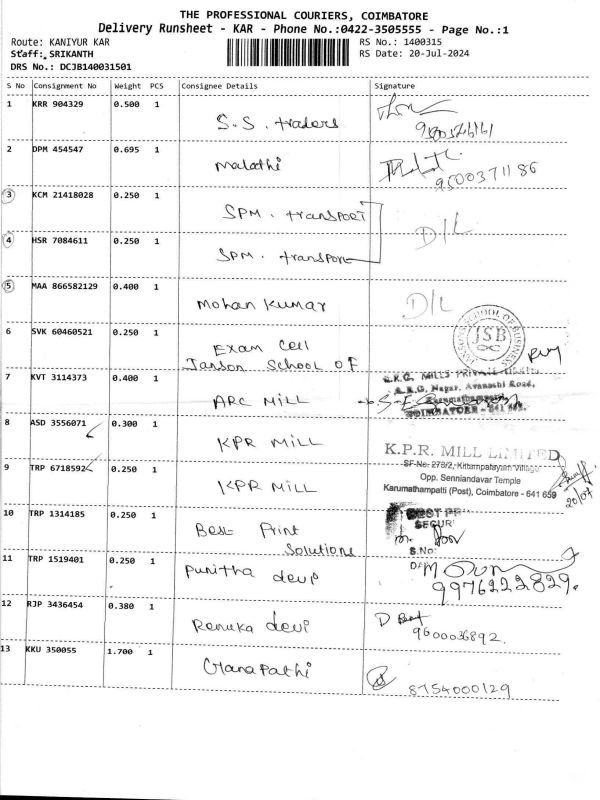 THE PROFESSIONAL COURIERS, COIMBATORE
Delivery Runsheet - KAR - Phone No.:0422-3505555 - Page No.:1
Route: KANIYUR KAR
RS No.: 1400315
Staff: SRIKANTH
RS Date: 20-Jul-2024
DRS No.: DCJB140031501
S No Consignment No Weight PCS Consignee Details Signature
1 KRR 904329 0.500 1
S.S. traders
2 DPM 454547 0.695 1
Malathi
9500371186
3 KCM 21418028 0.250 1
SPM. transport
D/L
4 HSR 7084611 0.250 1
SPM. transport
5 MAA 866582129 0.400 1
Mohan Kumar
D/L
6 SVK 60460521 0.250 1
Exam Cell
Janson School of
JANSONS SCHOOL OF BUSINESS
JSB
7 KVT 3114373 0.400 1
ARC Mill
S.K.G. MILLS PRIVATE LIMITED
S.R.G. Nagar, Avanashi Road,
Karumathampatti
COIMBATORE - 641
8 ASD 3556071 0.300 1
KPR Mill
K.P.R. MILL LIMITED
SF-No: 273/2, Kittampalayam Village
Opp. Senniandavar Temple
Karumathampatti (Post), Coimbatore - 641 659
20/07
9 TRP 6718592 0.250 1
KPR Mill
10 TRP 1314185 0.250 1
Best Print
Solutions
BEST PR
SECUR
S.No:
11 TRP 1519401 0.250 1
Punitha devi
9976222829.
12 RJP 3436454 0.380 1
Renuka devi
9600036892.
13 KKU 350055 1.700 1
Ganapathi
8754000129